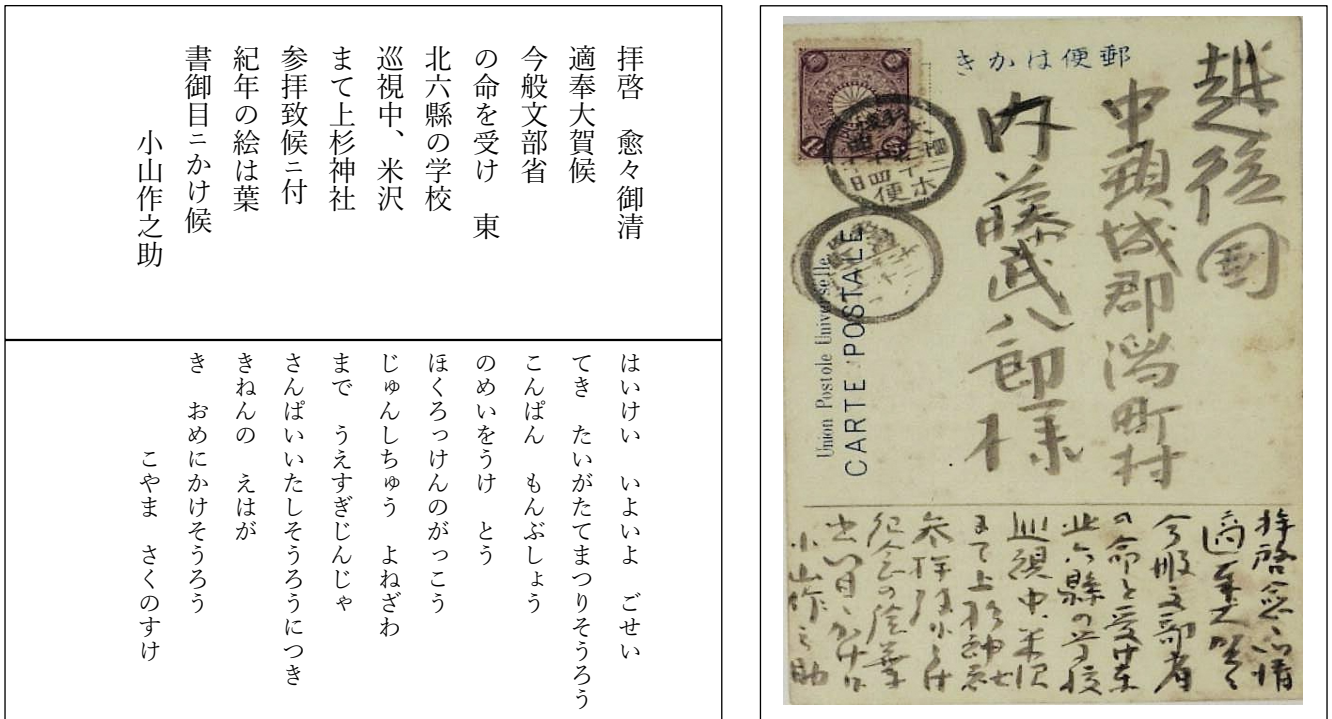 拝啓　愈々御清
適奉大賀候
今般文部省
の命を受け　東
北六縣の学校
巡視中、米沢
まて上杉神社
参拝致候ニ付
紀年の絵は葉
書御目ニかけ候
小山作之助
はいけい　いよいよ　ごせい
てき　たいがたてまつりそうろう
こんぱん　もんぶしょう
のめいをうけ　とう
ほくろっけんのがっこう
じゅんしちゅう　よねざわ
まで　うえすぎじんじゃ
さんぱいいたしそうろうにつき
きねんの　えはが
き　おめにかけそうろう
こやま　さくのすけ
きかは便郵
越後国
中頚城郡潟町村
内藤武八郎様
Union Postole Universelle
CARTE POSTALE
拝啓愈々御清
適奉大賀候
今般文部省
の命を受け東
北六縣の学校
巡視中、米沢
まて上杉神社
参拝致候ニ付
紀念の絵葉
書御目ニかけ候
小山作之助